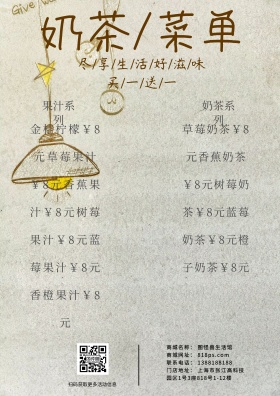 Give
奶茶/菜单
尽/享/生/活/好/滋/味
买/一/送/一
果汁系
列
金橙柠檬￥8
元草莓果汁
￥8元香蕉果
汁￥8元树莓
果汁￥8元蓝
莓果汁￥8元
香橙果汁￥8
元
奶茶系
列
草莓奶茶￥8
元香蕉奶茶
￥8元树莓奶
茶￥8元蓝莓
奶茶￥8元橙
子奶茶￥8元
扫码获取更多活动信息
商城名称：图怪兽生活馆
商城网址：818ps.com
联系电话：1388188188
门店地址：上海市张江高科技
园区1号3座818号1-12楼